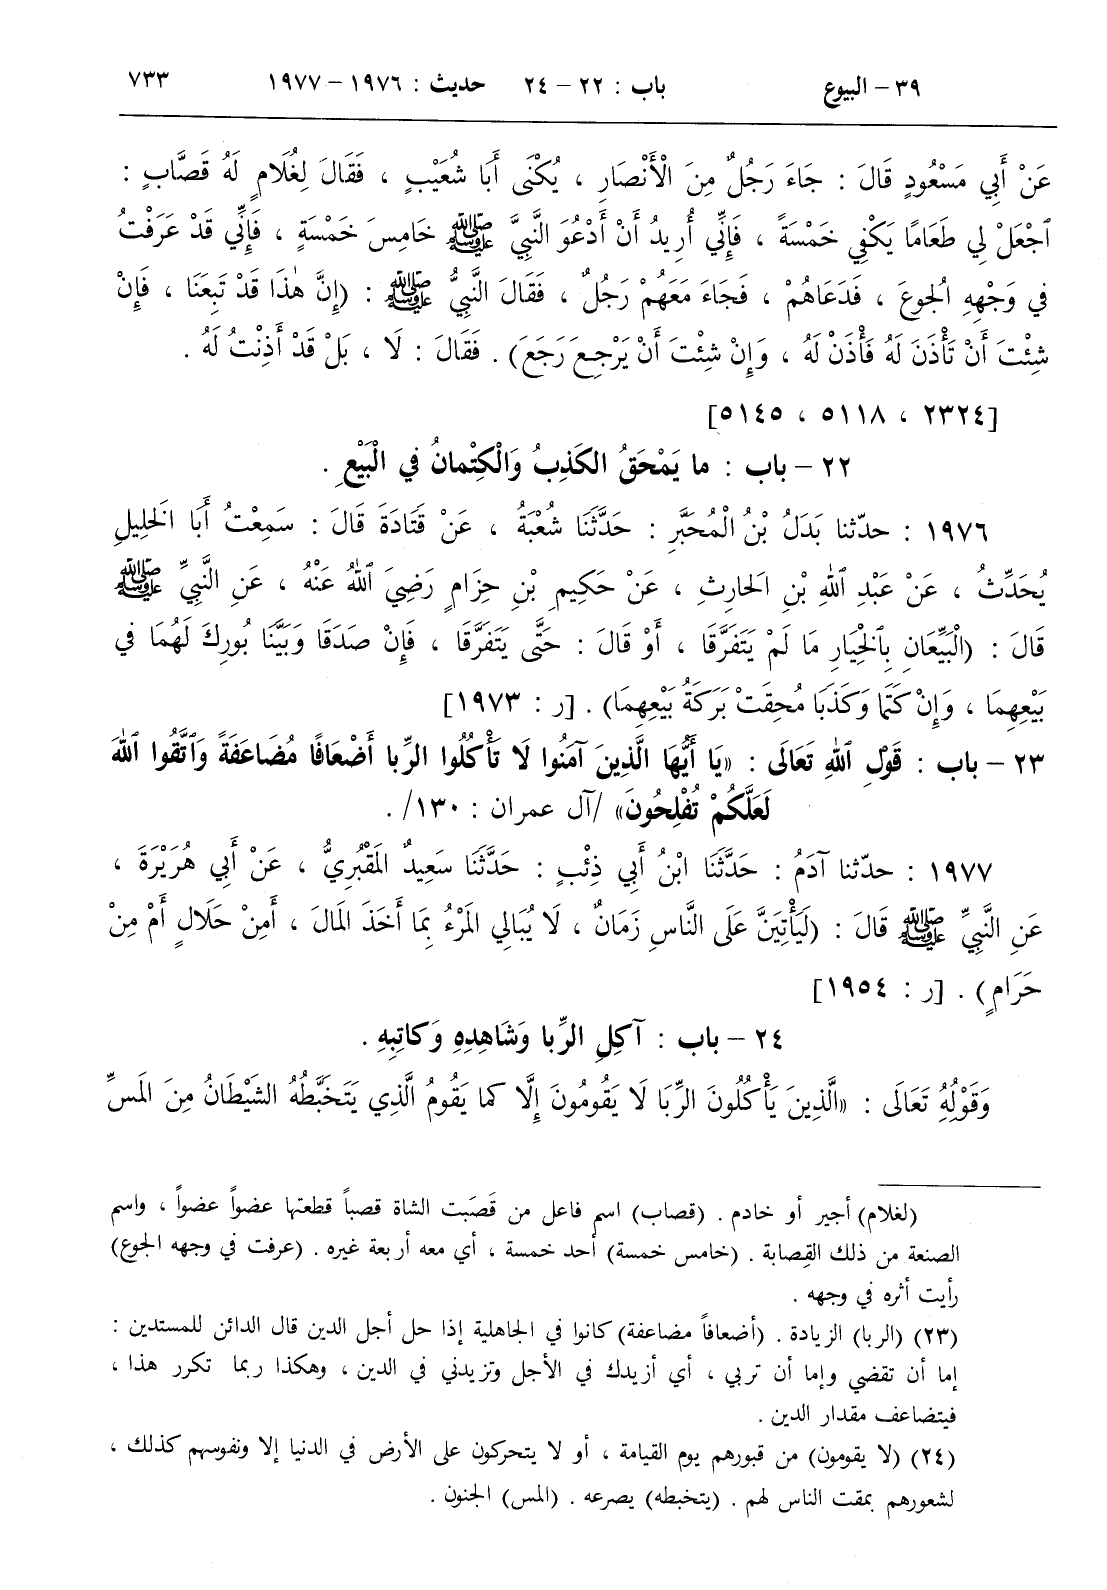 ٣٩ – البيوع باب : ٢٢ – ٢٤ حديث : ١٩٧٦ – ١٩٧٧ ٧٣٣
عَنْ أَبِي مَسْعُودٍ قَالَ : جَاءَ رَجُلٌ مِنَ الْأَنْصَارِ ، يُكْنَى أَبَا شُعَيْبٍ ، فَقَالَ لِغُلَامٍ لَهُ قَصَّابٍ :
ٱجْعَلْ لِي طَعَامًا يَكْفِي خَمْسَةً ، فَإِنِّي أُرِيدُ أَنْ أَدْعُوَ النَّبِيَّ ﷺ خَامِسَ خَمْسَةٍ ، فَإِنِّي قَدْ عَرَفْتُ
فِي وَجْهِهِ الْجُوعَ ، فَدَعَاهُمْ ، فَجَاءَ مَعَهُمْ رَجُلٌ ، فَقَالَ النَّبِيُّ ﷺ : (إِنَّ هٰذَا قَدْ تَبِعَنَا ، فَإِنْ
شِئْتَ أَنْ تَأْذَنَ لَهُ فَأْذَنْ لَهُ ، وَإِنْ شِئْتَ أَنْ يَرْجِعَ رَجَعَ) . فَقَالَ : لَا ، بَلْ قَدْ أَذِنْتُ لَهُ .
[٢٣٢٤ ، ٥١١٨ ، ٥١٤٥]
٢٢ – باب : ما يَمْحَقُ الكَذِبُ وَالْكِتْمانُ في الْبَيْعِ .
١٩٧٦ : حدّثنا بَدَلُ بْنُ الْمُحَبَّرِ : حَدَّثَنَا شُعْبَةُ ، عَنْ قَتَادَةَ قَالَ : سَمِعْتُ أَبَا الخَلِيلِ
يُحَدِّثُ ، عَنْ عَبْدِ ٱللهِ بْنِ الحَارِثِ ، عَنْ حَكِيمِ بْنِ حِزَامٍ رَضِيَ ٱللهُ عَنْهُ ، عَنِ النَّبِيِّ ﷺ
قَالَ : (الْبَيِّعَانِ بِٱلخِيَارِ مَا لَمْ يَتَفَرَّقَا ، أَوْ قَالَ : حَتَّى يَتَفَرَّقَا ، فَإِنْ صَدَقَا وَبَيَّنَا بُورِكَ لَهُمَا في
بَيْعِهِمَا ، وَإِنْ كَتَمَا وَكَذَبَا مُحِقَتْ بَرَكَةُ بَيْعِهِمَا) . [ر : ١٩٧٣]
٢٣ – باب : قَوْلِ ٱللهِ تَعَالَى : «يَا أَيُّهَا الَّذِينَ آمَنُوا لَا تَأْكُلُوا الرِّبا أَضْعَافًا مُضَاعَفَةً وَٱتَّقُوا ٱللهَ
لَعَلَّكُمْ تُفْلِحُونَ» /آل عمران : ١٣٠/ .
١٩٧٧ : حدّثنا آدَمُ : حَدَّثَنَا ابْنُ أَبِي ذِئْبٍ : حَدَّثَنَا سَعِيدٌ المَقْبُرِيُّ ، عَنْ أَبِي هُرَيْرَةَ ،
عَنِ النَّبِيِّ ﷺ قَالَ : (لَيَأْتِيَنَّ عَلَى النَّاسِ زَمَانٌ ، لَا يُبَالِي المَرْءُ بِمَا أَخَذَ المَالَ ، أَمِنْ حَلَالٍ أَمْ مِنْ
حَرَامٍ) . [ر : ١٩٥٤]
٢٤ – باب : آكِلِ الرِّبا وَشَاهِدِهِ وَكاتِبِهِ .
وَقَوْلِهِ تَعَالَى : «الَّذِينَ يَأْكُلُونَ الرِّبَا لَا يَقُومُونَ إِلَّا كما يَقُومُ الَّذِي يَتَخَبَّطُهُ الشَّيْطَانُ مِنَ المَسِّ
(لغلام) أجير أو خادم . (قصاب) اسم فاعل من قَصَبت الشاة قصباً قطعتها عضواً عضواً ، واسم
الصنعة من ذلك القِصابة . (خامس خمسة) أحد خمسة ، أي معه أربعة غيره . (عرفت في وجهه الجوع)
رأيت أثره في وجهه .
(٢٣) (الربا) الزيادة . (أضعافاً مضاعفة) كانوا في الجاهلية إذا حل أجل الدين قال الدائن للمستدين :
إما أن تقضي وإما أن تربي ، أي أزيدك في الأجل وتزيدني في الدين ، وهكذا ربما تكرر هذا ،
فيتضاعف مقدار الدين .
(٢٤) (لا يقومون) من قبورهم يوم القيامة ، أو لا يتحركون على الأرض في الدنيا إلا ونفوسهم كذلك ،
لشعورهم بمقت الناس لهم . (يتخبطه) يصرعه . (المس) الجنون .